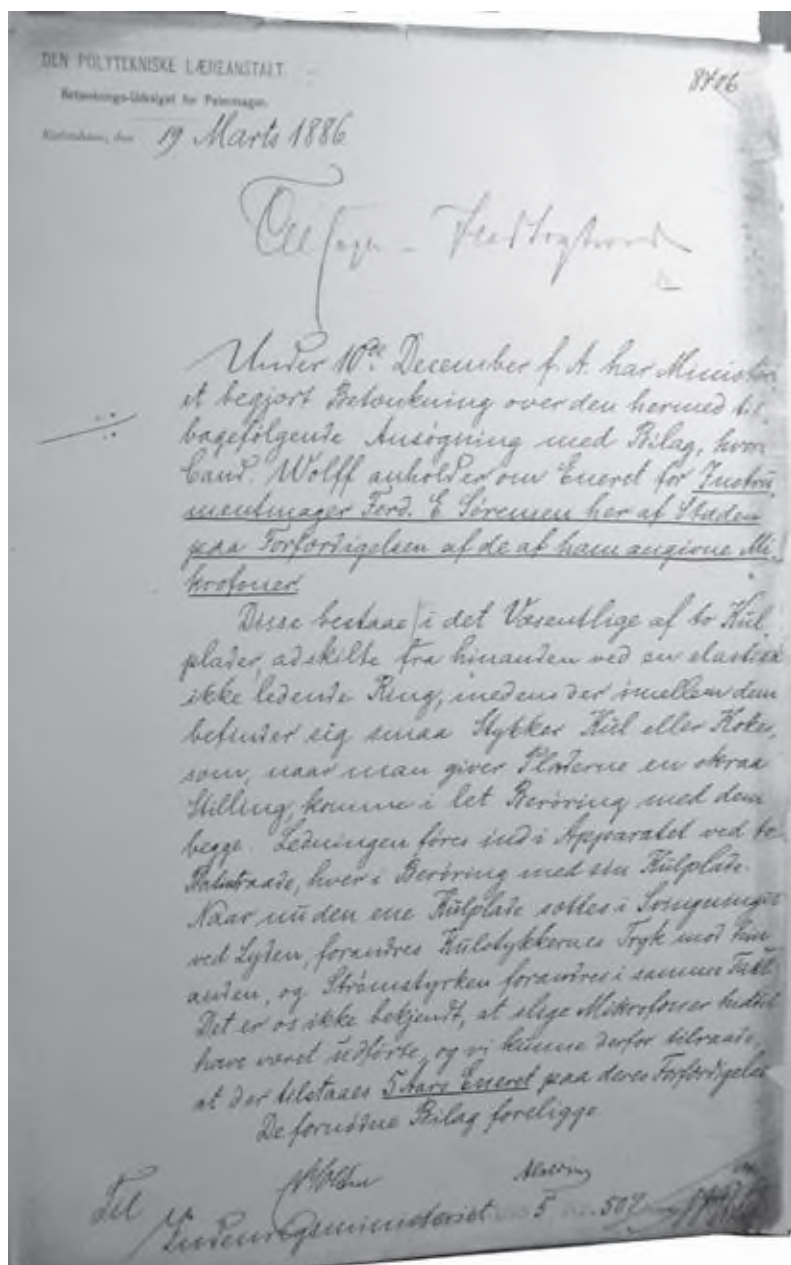 DEN POLYTEKNISKE LÆREANSTALT
Betænknings-Udvalget for Patentsager.
8406
København, den 19 Marts 1886
Under 10de December f. A. har Ministeri-
et begjert Betænkning over den hermed til-
bagefølgende Ansøgning med Bilag, hvori
Cand. Wolff anholder om Eneret for Instru-
mentmager Ferd. E Sørensen her af Staden
paa Forfærdigelsen af de af ham angivne Mi-
krofoner.
Disse bestaae i det Væsentlige af to Kul-
plader, adskilte fra hinanden ved en elastisk
ikke ledende Ring, medens der imellem dem
befinder sig smaa Stykker Kul eller Kokes,
som, naar man giver Pladerne en skraa
Stilling, komme i let Berøring med dem
begge. Ledningen føres ind i Apparatet ved to
hver i Berøring med sin Kulplade.
Naar nu den ene Kulplade sættes i Svingninger
ved Lyden, forandres Kulstykkernes Tryk mod hin-
anden, og Strømstyrken forandres i samme Takt.
Det er os ikke bekjendt, at slige Mikrofoner hidtil
have været udførte, og vi kunne derfor tilraade,
at der tilstaaes 5 Aars Eneret paa deres Forfærdigelse
De fornødne Bilag foreligge
Til
Indenrigsministeriet 5 507